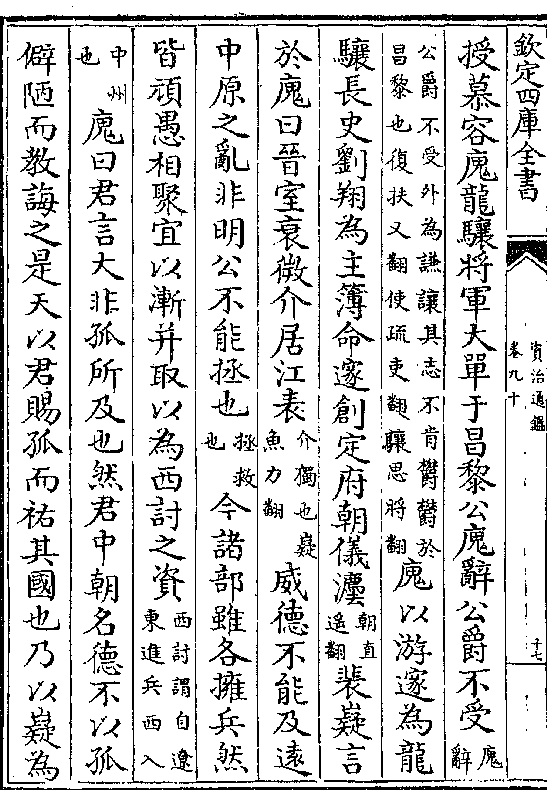 欽定四庫全書
資治通鑑
卷九十
十七
授慕容廆龍驤將軍大單于昌黎公廆辭公爵不受廆辭
公爵不受外為謙讓其志不肯鬱鬱於
昌黎也復扶又翻使疏吏翻驤思將翻
廆以游邃為龍
驤長史劉翔為主簿命邃創定府朝儀灋朝直遥翻裴嶷言
於廆曰晉室衰微介居江表介獨也嶷魚力翻威德不能及遠
中原之亂非明公不能拯也拯救也今諸部雖各擁兵然
皆頑愚相聚宜以漸并取以為西討之資西討謂自遼東進兵西入
中州也廆曰君言大非孤所及也然君中朝名德不以孤
僻陋而教誨之是天以君賜孤而祐其國也乃以嶷為